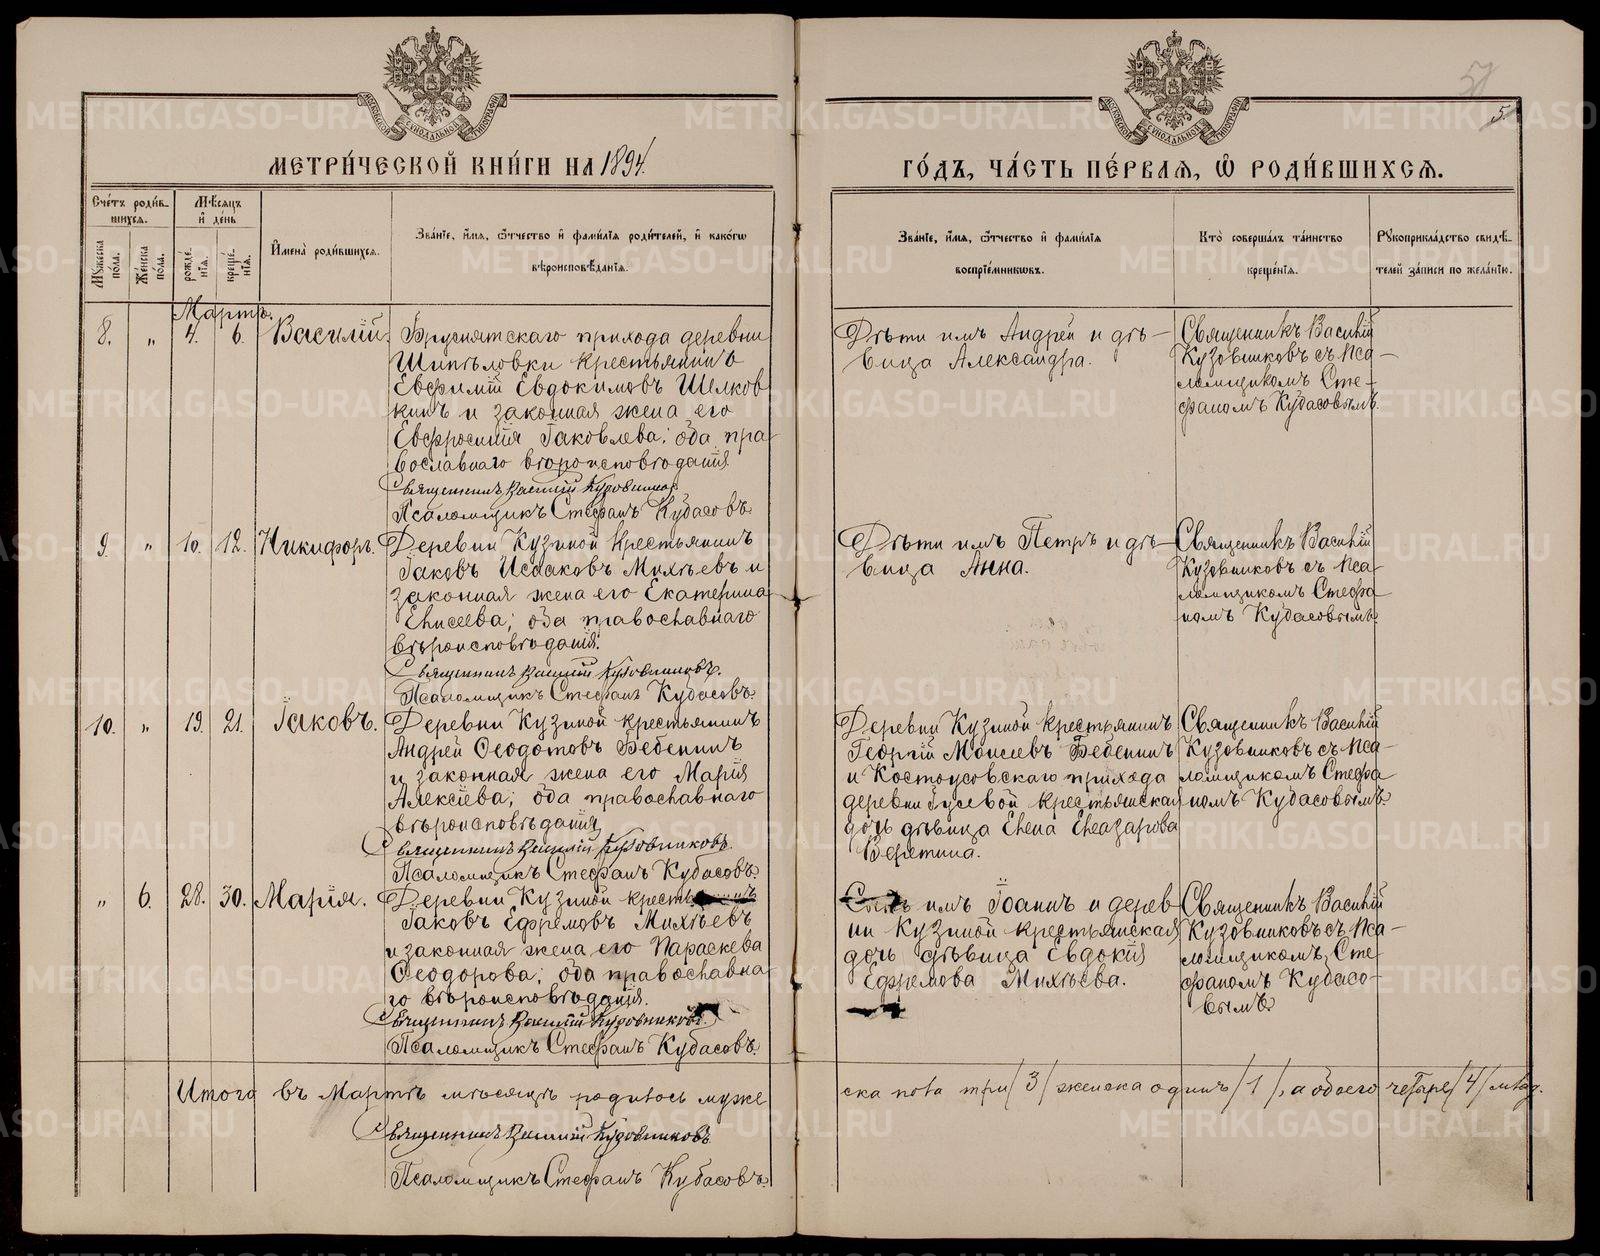 МЕТРИ́ЧЕСКОЙ КНИ́ГИ НА 1894.
ГО́ДЪ, ЧА́СТЬ ПЕ́РВАЯ, Ѽ РОДИ́ВШИХСѦ.
5
Сче́тъ роди́вшихся.
Мѣ́сяцъ и де́нь
Му́жеска по́ла.
Же́нска по́ла.
рожде́нїя.
креще́нїя.
И́мена̀ роди́вшихся.
Зва́нїе, и́мя, ѻ҆́тчество и фами́лїя роди́телей, и како́гѡ
вѣроисповѣ́данїя.
Зва́нїе, и́мя, ѻ҆́тчество и фами́лїя
воспрїе́мникѡвъ.
Кто̀ соверша́лъ та́инство
креще́нїя.
Рꙋкоприкла́дство свидѣ́телей за́писи по жела́нїю.
Мартъ.
8. „ 4. 6. Василій.
Бруснятскаго прихода деревни
Шипѣловки крестьянинъ
Евфимій Евдокимовъ Шелков
кинъ и законная жена его
Евфросинія Іаковлева; оба пра
вославнаго вѣроисповѣданія
Священникъ Василій Кузовниковъ
Псаломщикъ Стефанъ Кубасовъ.
Дѣти имъ Андрей и дѣ–
вица Александра.
Священникъ Василій
Кузовниковъ съ Пса–
ломщикомъ Сте–
фаномъ Кубасовымъ.
9. „ 10. 12. Никифоръ.
Деревни Кузиной крестьянинъ
Іаковъ Исааковъ Михѣевъ и
законная жена его Екатерина
Елисеева; оба православнаго
вѣроисповѣданія.
Священникъ Василій Кузовниковъ.
Псаломщикъ Стефанъ Кубасовъ.
Дѣти имъ Петръ и дѣ–
вица Анна.
Священникъ Василій
Кузовниковъ съ Пса–
ломщикомъ Стефа
номъ Кубасовымъ.
10. „ 19. 21. Іаковъ.
Деревни Кузиной крестьянинъ
Андрей Ѳеодотовъ Бебенинъ
и законная жена его Марія
Алексіева; оба православнаго
вѣроисповѣданія
Священникъ Василій Кузовниковъ.
Псаломщикъ Стефанъ Кубасовъ.
Деревни Кузиной крестьянинъ
Георгій Моисеевъ Бебенинъ
и Костоусовскаго прихода
деревни Гусевой крестьянская
дочь дѣвица Елена Елеазарова
Веретина.
Священникъ Василій
Кузовниковъ съ Пса–
ломщикомъ Стефа
номъ Кубасовымъ.
„ 6. 28. 30. Марія.
Деревни Кузиной
Іаковъ Ефремовъ Михѣевъ
и законная жена его Параскева
Ѳеодорова; оба православна–
го вѣроисповѣданія.
Священникъ Василій Кузовниковъ.
Псаломщикъ Стефанъ Кубасовъ.
имъ Іоаннъ и дерев
ни Кузиной крестьянская
дочь дѣвица Евдокія
Ефремова Михѣева.
Священникъ Василій
Кузовниковъ съ Пса–
ломщикомъ Сте
фаномъ Кубасо–
вымъ.
Итого въ Мартѣ мѣсяцѣ родилось муже
ска пола три /3/ женска одинъ /1/, а обоего четыре /4/ млад.
Священникъ Василій Кузовниковъ
Псаломщикъ Стефанъ Кубасовъ.
METRIKI.GASO-URAL.RU